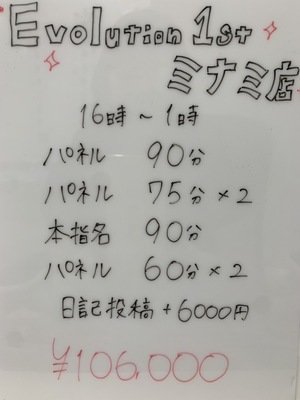 Evolution 1st
ミナミ店
16時～1時
パネル 90分
パネル 75分×2
本指名 90分
パネル 60分×2
日記投稿+6000円
¥106,000